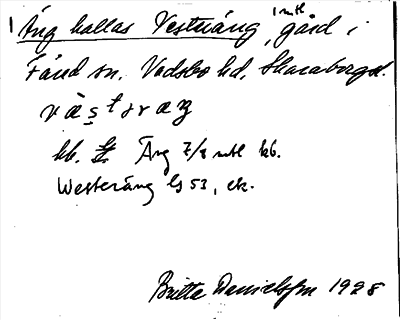 Äng kallas Vestäng, 1 mtl gård i
Färed sn. Vadsbo hd. Skaraborgs l.
väs̥tɜræŋ
kb. Äng 7/8 mtl kb.
Westeräng ls 53, ek.
Britta Danielsson 1928